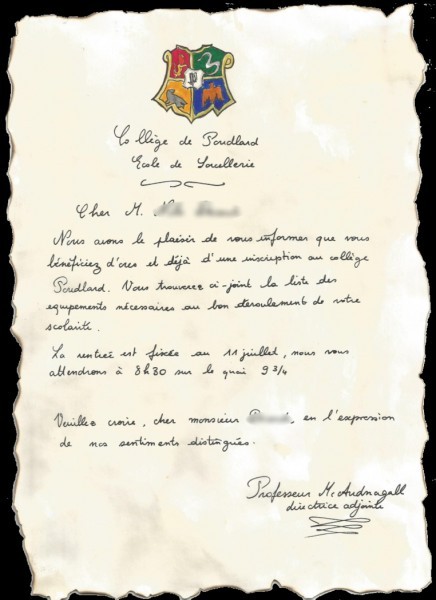 Collège de Poudlard
Ecole de Sorcellerie
Cher M.
Nous avons le plaisir de vous informer que vous
bénéficiez d'ores et déjà d'une inscription au collège
Poudlard. Vous trouverez ci-joint la liste des
equipements nécessaires au bon déroulement de votre
scolarité.
La rentrée est fixée au 11 juillet, nous vous
attendrons à 8h30 sur le quai 9 3/4
Veuillez croire, cher monsieur , en l'expression
de nos sentiments distingués.
Professeur McAudnagall
directrice adjointe